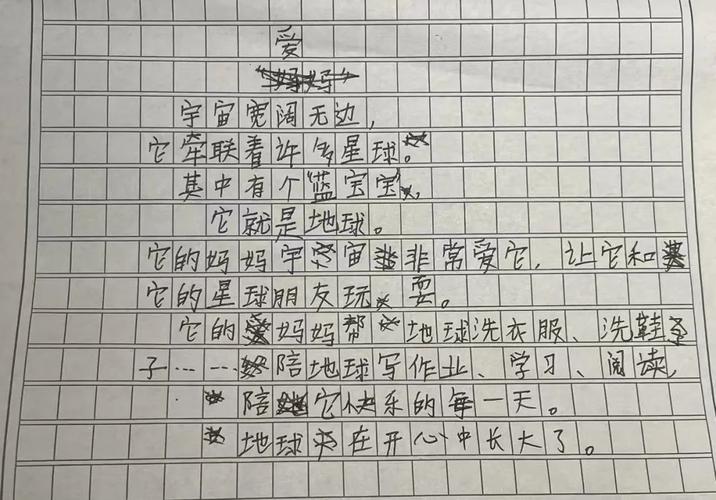 爱
"妈妈"
宇宙宽阔无边,
它牵联着许多星球。
其中有个"蓝宝宝",
它就是地球。
它的妈妈宇宙非常爱它,让它和
它的星球朋友玩耍。
它的妈妈帮地球洗衣服、洗鞋
子……陪地球写作业、学习、阅读,
陪它快乐的每一天。
地球在开心中长大了。